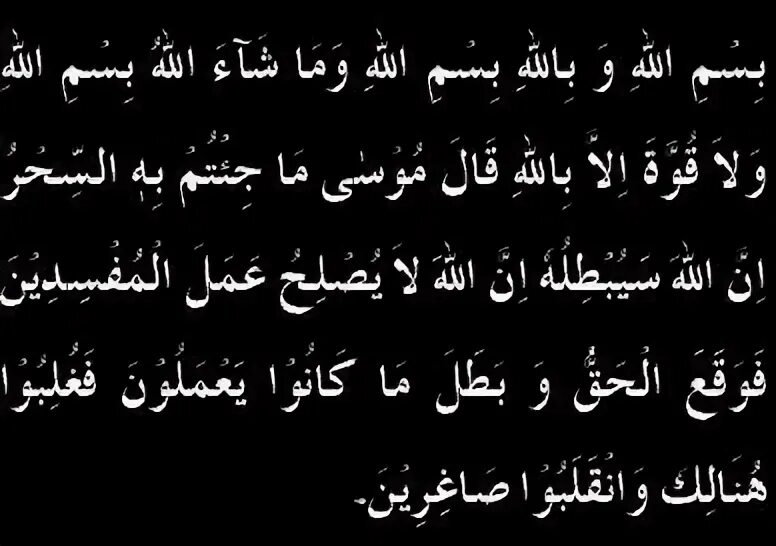 بِسْمِ اللهِ وَ بِاللهِ بِسْمِ اللهِ وَمَا شَآءَ اللهُ بِسْمِ اللهِ
وَلاَ قُوَّةَ اِلاَّ بِاللهِ قَالَ مُوْسٰى مَا جِئْتُمْ بِهِ السِّحْرُ
اِنَّ اللهَ سَيُبْطِلُهُ اِنَّ اللهَ لاَ يُصْلِحُ عَمَلَ الْمُفْسِدِيْنَ
فَوَقَعَ الْحَقُّ وَ بَطَلَ مَا كَانُوْا يَعْمَلُوْنَ فَغُلِبُوْا
هُنَالِكَ وَانْقَلَبُوْا صَاغِرِيْنَ.